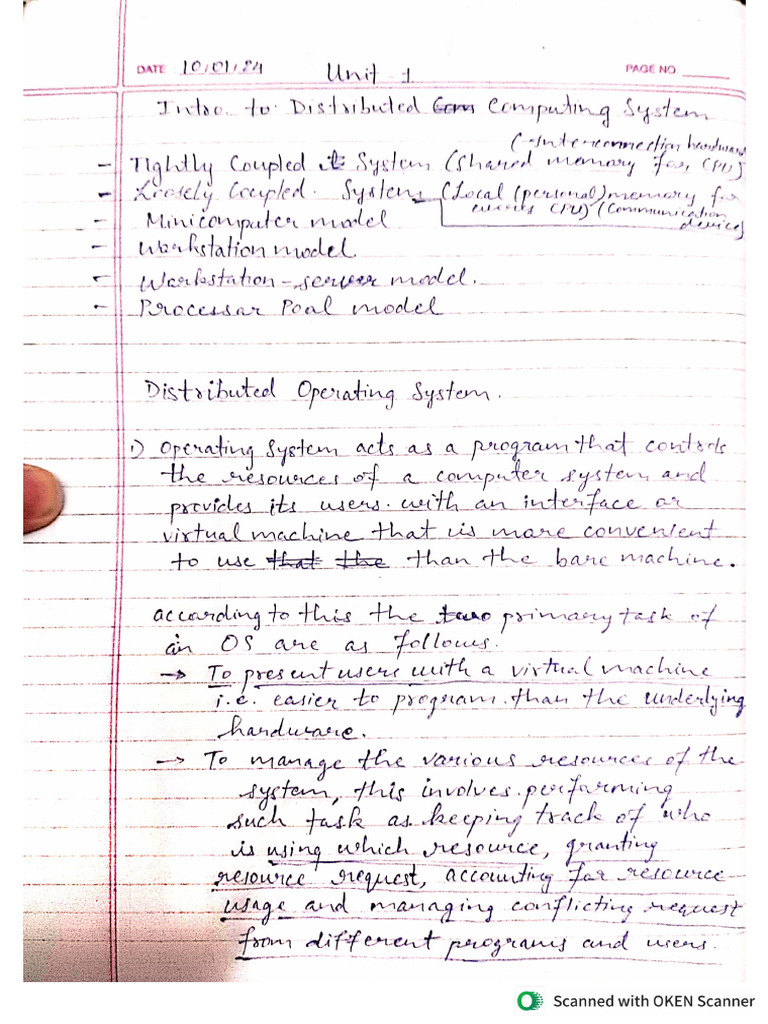 DATE 10/01/24 Unit 1 PAGE NO
Intro. to Distributed Com Computing System
(Interconnection hardware
- Tightly Coupled System (Shared memory for CPU)
- Loosely Coupled. System (Local (personal) memory for
CPU) (Communication
devices)
- Minicomputer model
- Workstation model
- Workstation-server model.
- Processor Pool model
Distributed Operating System.
1) Operating System acts as a program that controls
the resources of a computer system and
provides its users. with an interface or
virtual machine that is more convenient
to use that the than the bare machine.
according to this the two primary task of
an OS are as follows.
→ To present users with a virtual machine
i.e. easier to program. than the underlying
hardware.
→ To manage the various resources of the
system, this involves performing
such task as keeping track of who
is using which resource, granting
resource request, accounting for resource
usage and managing conflicting request
from different programs and users.
Scanned with OKEN Scanner